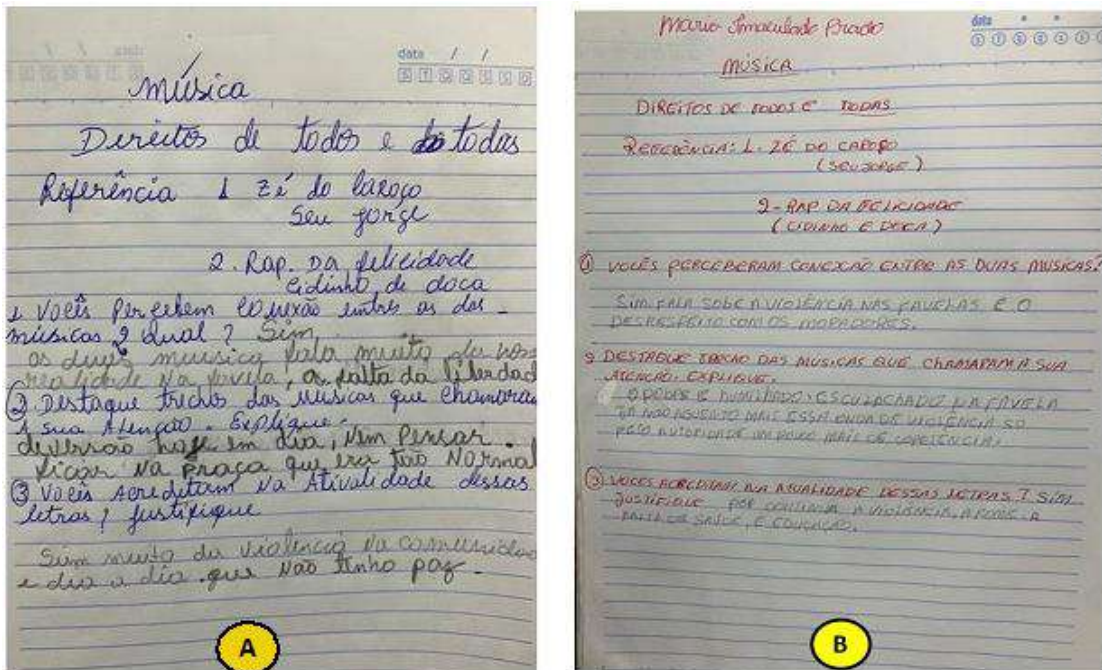 data / /
S T Q Q S S D
música
Dereitos de todos e de todas
Referência 1 Zé do Caroço
Seu Jorge
2. Rap. Da felicidade
Cidinho de doca
1 Vocês Percebem conexão entres as das
músicas? Qual? Sim
os duas musica fala muito da noss
realidade na favela, a falta da liberdad
② Destaque trechos das músicas que chamaram
A sua Atenção. Explique.
diversão hoje em dia, nem pensar.
ficar na praça que era tão Normal
③ Vocês Acreditam na Atualidade dessas
letras? Justifique
Sim muito da violência na comunidade
e dia a dia que não tenho paz.
A
Maria Imaculada Prado
data
MÚSICA
DIREITOS DE TODOS E TODAS
REFERÊNCIA: 1. ZÉ DO CAROÇO
(SEU JORGE)
2- RAP DA FELICIDADE
(CIDINHO E DOCA)
① VOCÊS PERCEBERAM CONEXÃO ENTRE AS DUAS MUSICAS?
SIM FALA SOBE A VIOLÊNCIA NAS FAVELAS E O
DESRESPEITO COM OS MORADORES.
2 DESTAQUE TRECHO DAS MUSICAS QUE CHAMARAM A SUA
ATENÇÃO. EXPLIQUE.
O POBRE É HUMILHADO, ESCULACHADO NA FAVELA
JÁ NÃO AGUENTO MAIS ESSA ONDA DE VIOLÊNCIA SO
PEÇO AUTORIDADE UM POUCO MAIS DE
③ VOCES ACREDITAM NA ATUALIDADE DESSAS LETRAS? SIM
JUSTIFIQUE POR CONTINUA A VIOLÊNCIA, A FOME A
FALTA DE SAÚDE, E EDUCAÇÃO.
B